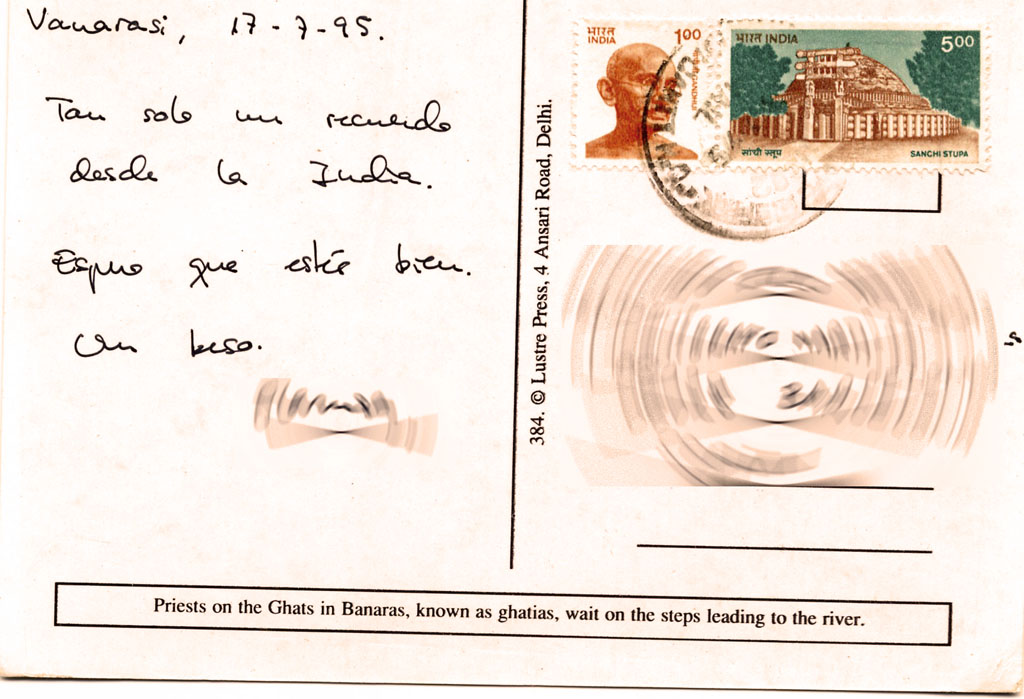 Vanarasi, 17-7-95.
Tan solo un recuerdo
desde la India.
Espero que estés bien.
Un beso.
384. © Lustre Press, 4 Ansari Road, Delhi.
भारत
INDIA
100
भारत INDIA
500
सांची स्तूप
SANCHI STUPA
Priests on the Ghats in Banaras, known as ghatias, wait on the steps leading to the river.